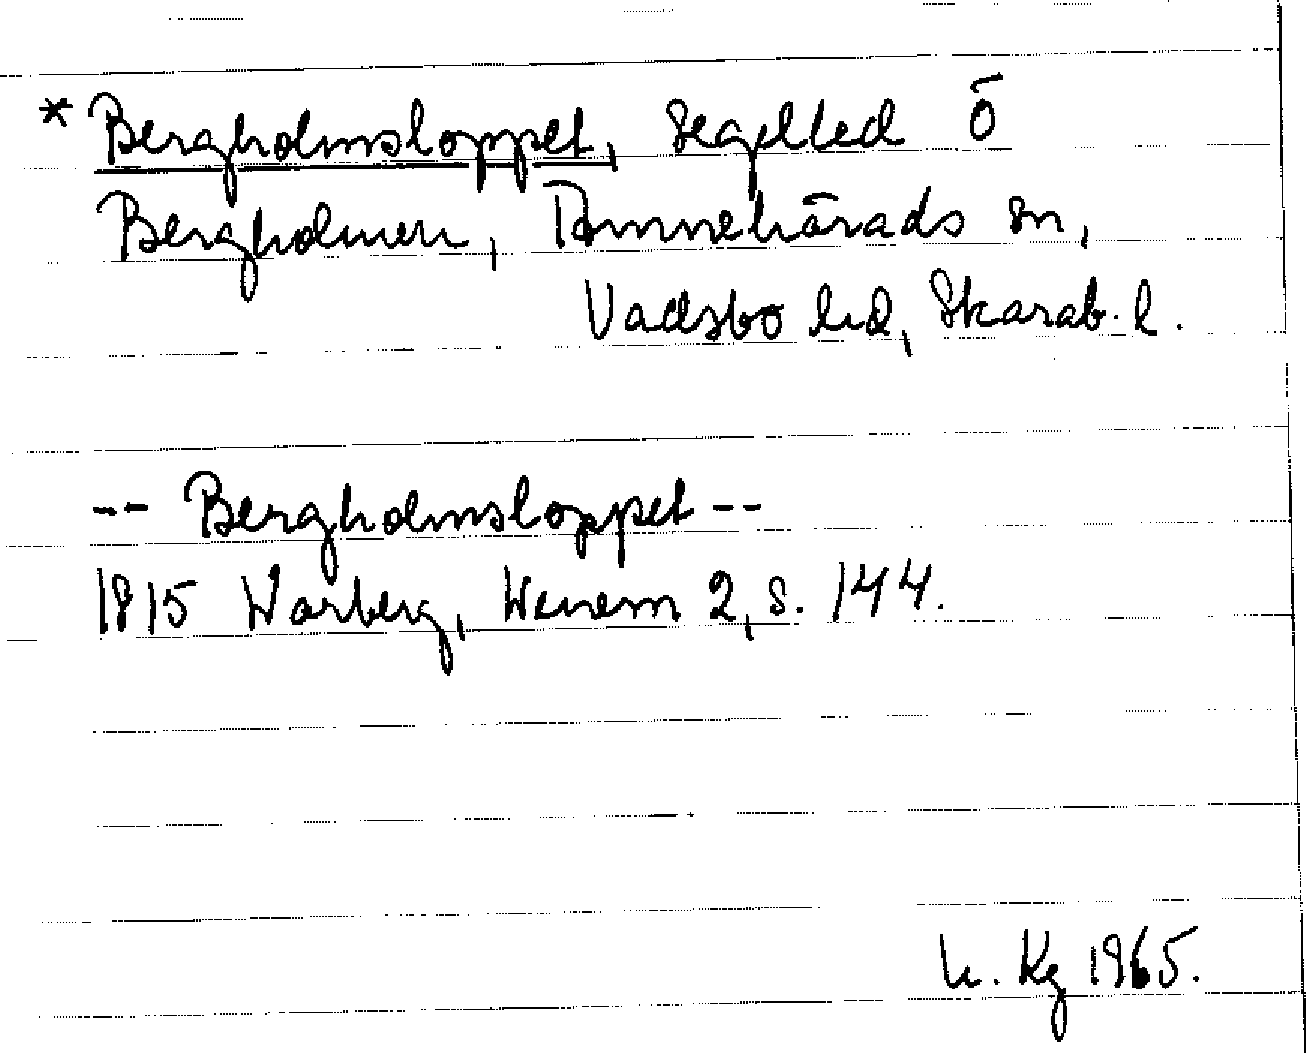 * Bergholmsloppet, segelled Ö
Bergholmen, Amnehärads sn,
Vadsbo hd, Skarab. l.
-- Bergholmsloppet --
1815 Warberg, Wenern 2, s. 144.
Kg 1965.